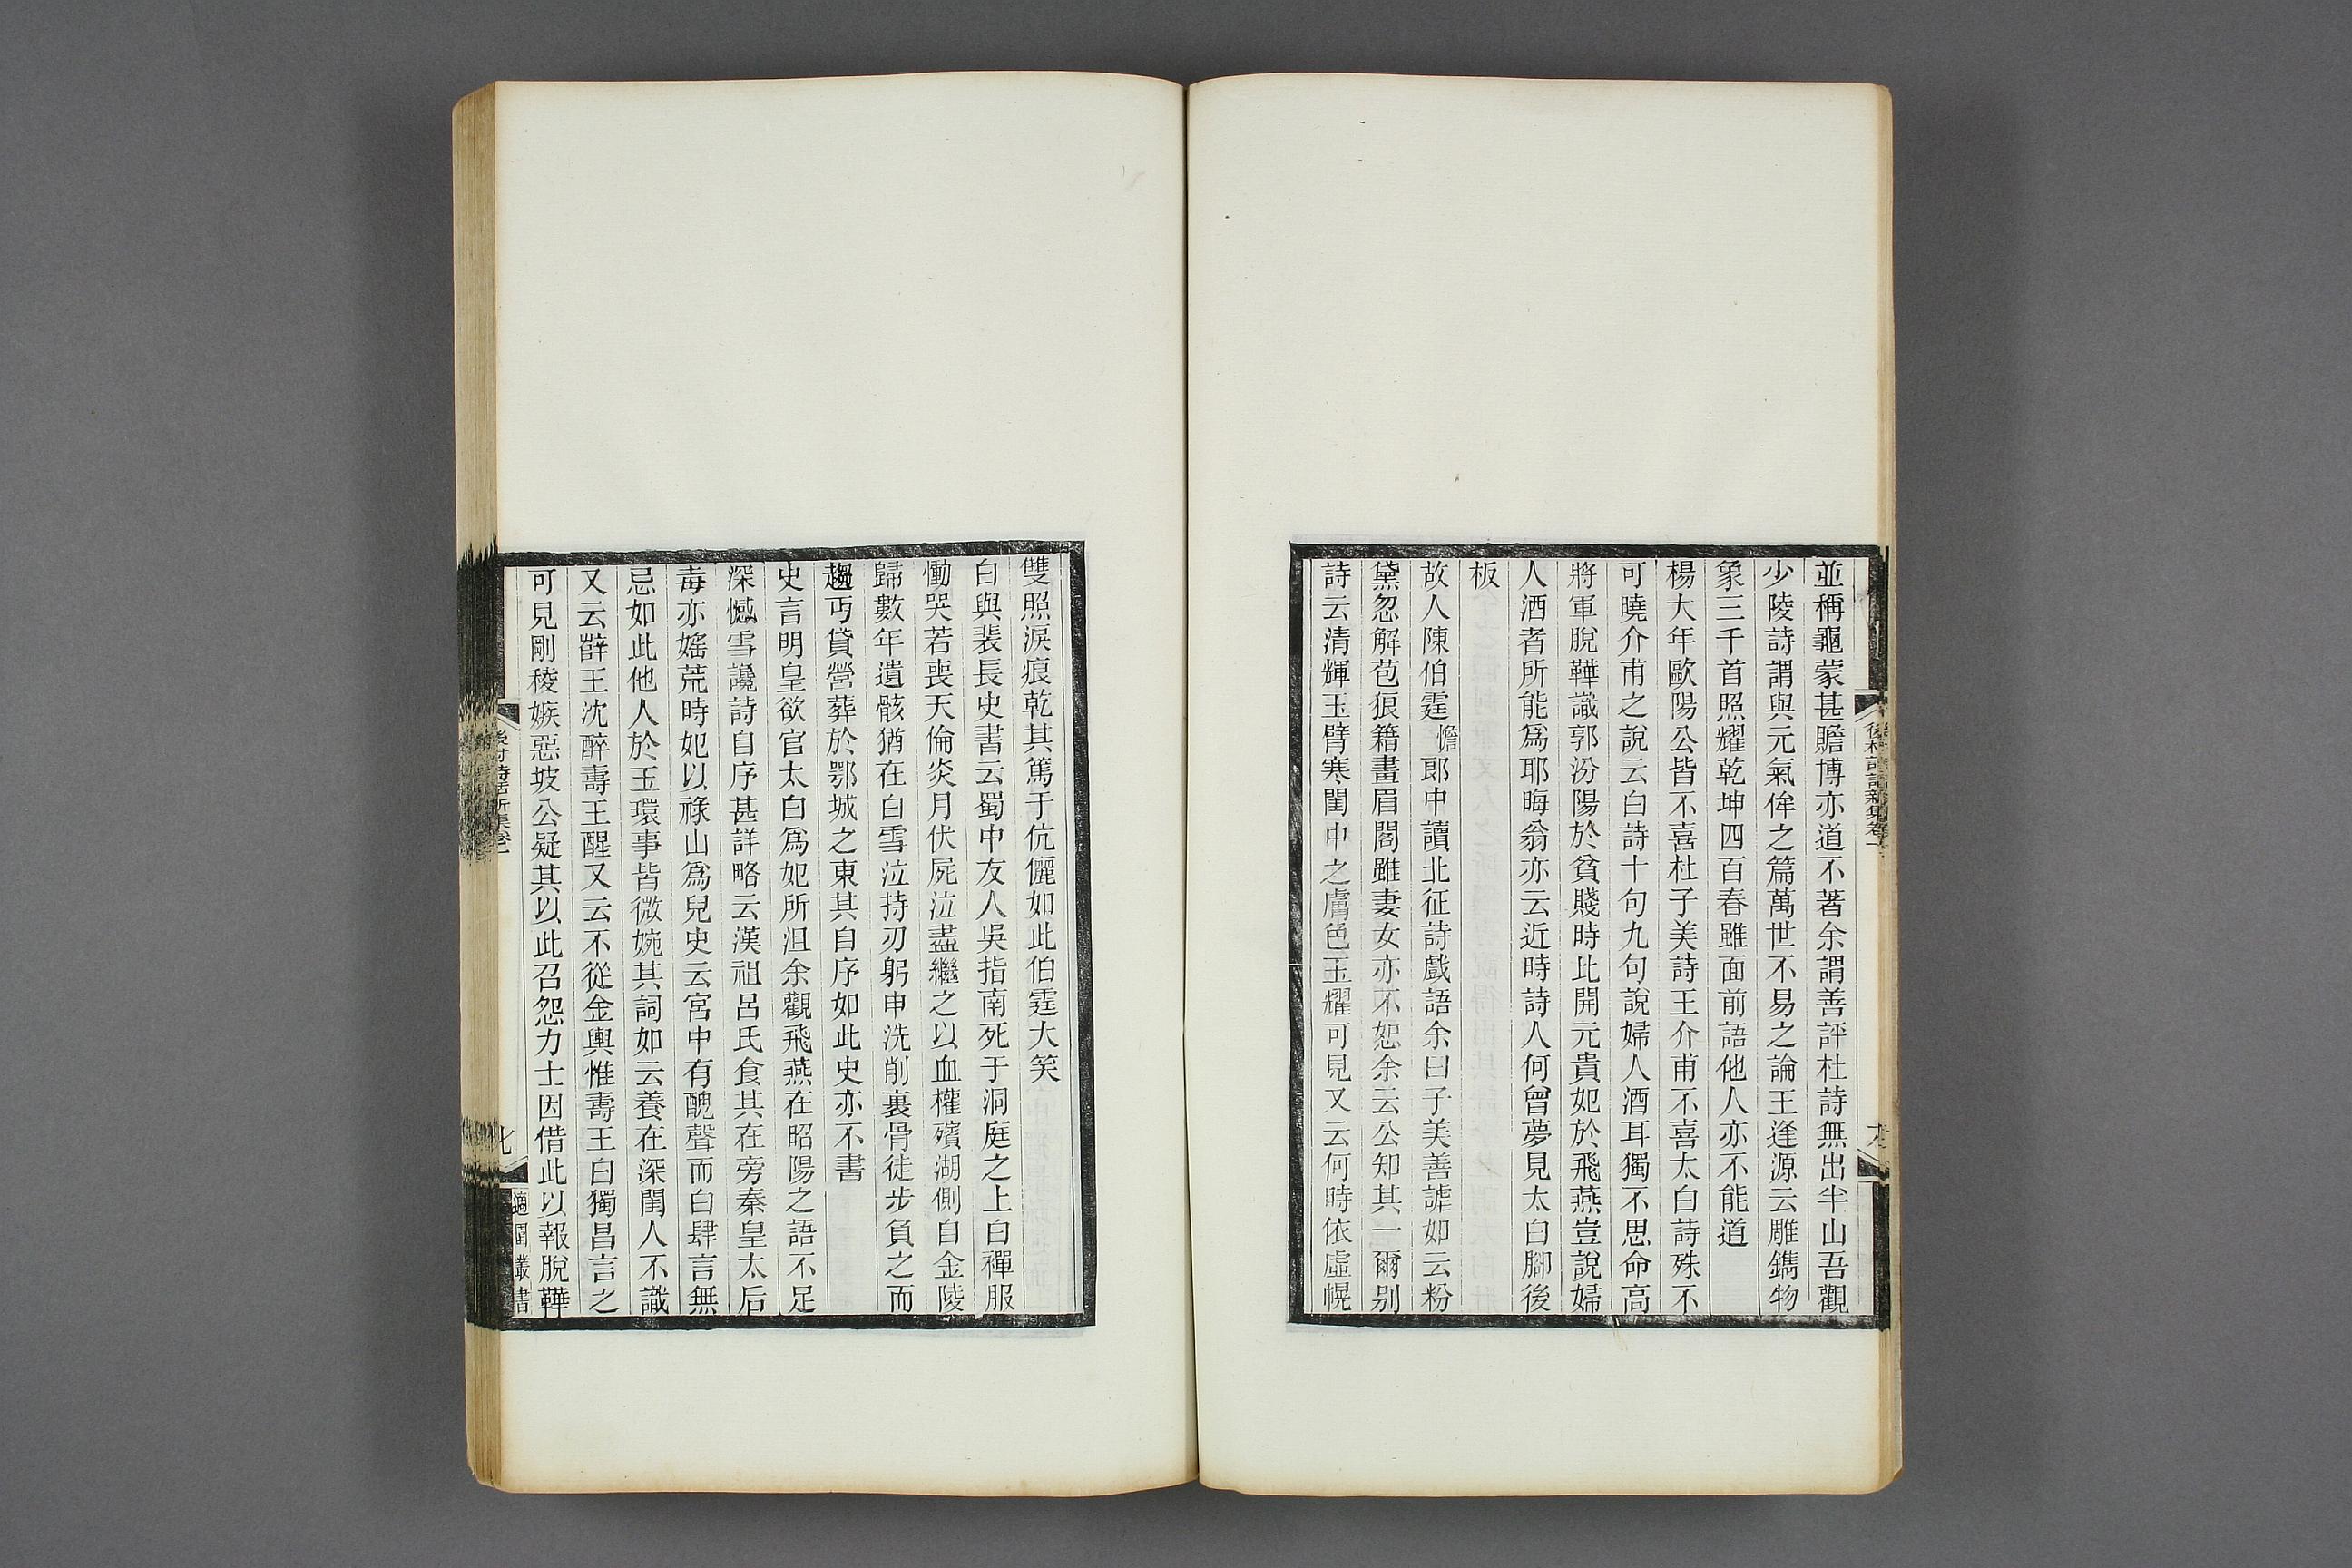 並稱龜蒙甚贍博亦道不著余謂善評杜詩無出半山吾觀
少陵詩謂與元氣侔之篇萬世不易之論王逢源云雕鐫物
象三千首照耀乾坤四百春雖面前語他人亦不能道
楊大年歐陽公皆不喜杜子美詩王介甫不喜太白詩殊不
可曉介甫之說云白詩十句九句說婦人酒耳獨不思命高
將軍脫鞾識郭汾陽於貧賤時比開元貴妃於飛燕豈說婦
人酒者所能爲耶晦翁亦云近時詩人何曾夢見太白腳後
板
故人陳伯霆憺郎中讀北征詩戲語余曰子美善謔如云粉
黛忽解苞狼籍畫眉闊雖妻女亦不恕余云公知其一爾別
詩云清輝玉臂寒閨中之膚色玉耀可見又云何時依虛幌
後村詩話新集卷一
雙照淚痕乾其篤于伉儷如此伯霆大笑
白與裴長史書云蜀中友人吳指南死于洞庭之上白禫服
慟哭若喪天倫炎月伏屍泣盡繼之以血權殯湖側自金陵
歸數年遺骸猶在白雪泣持刃躬申洗削裹骨徒步負之而
趨丐貸營葬於鄂城之東其自序如此史亦不書
史言明皇欲官太白爲妃所沮余觀飛燕在昭陽之語不足
深憾雪讒詩自序甚詳略云漢祖呂氏食其在旁秦皇太后
毐亦媱荒時妃以祿山爲兒史云宮中有醜聲而白肆言無
忌如此他人於玉環事皆微婉其詞如云養在深閨人不識
又云薛王沈醉壽王醒又云不從金輿惟壽王白獨昌言之
可見剛稜嫉惡坡公疑其以此召怨力士因借此以報脫鞾
後村詩話新集卷一
適園叢書